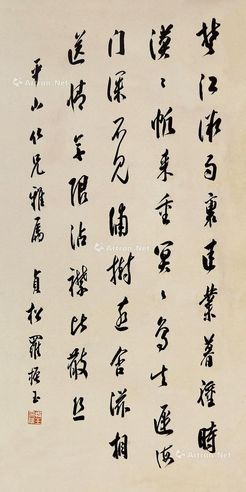 楚江微雨裏建業暮鐘時
漠〻帆來重冥〻鳥去遲海
門深不見浦樹遠含滋相
送情無限沾襟比散絲
平山仁兄雅屬 貞松羅振玉
Artron.Net